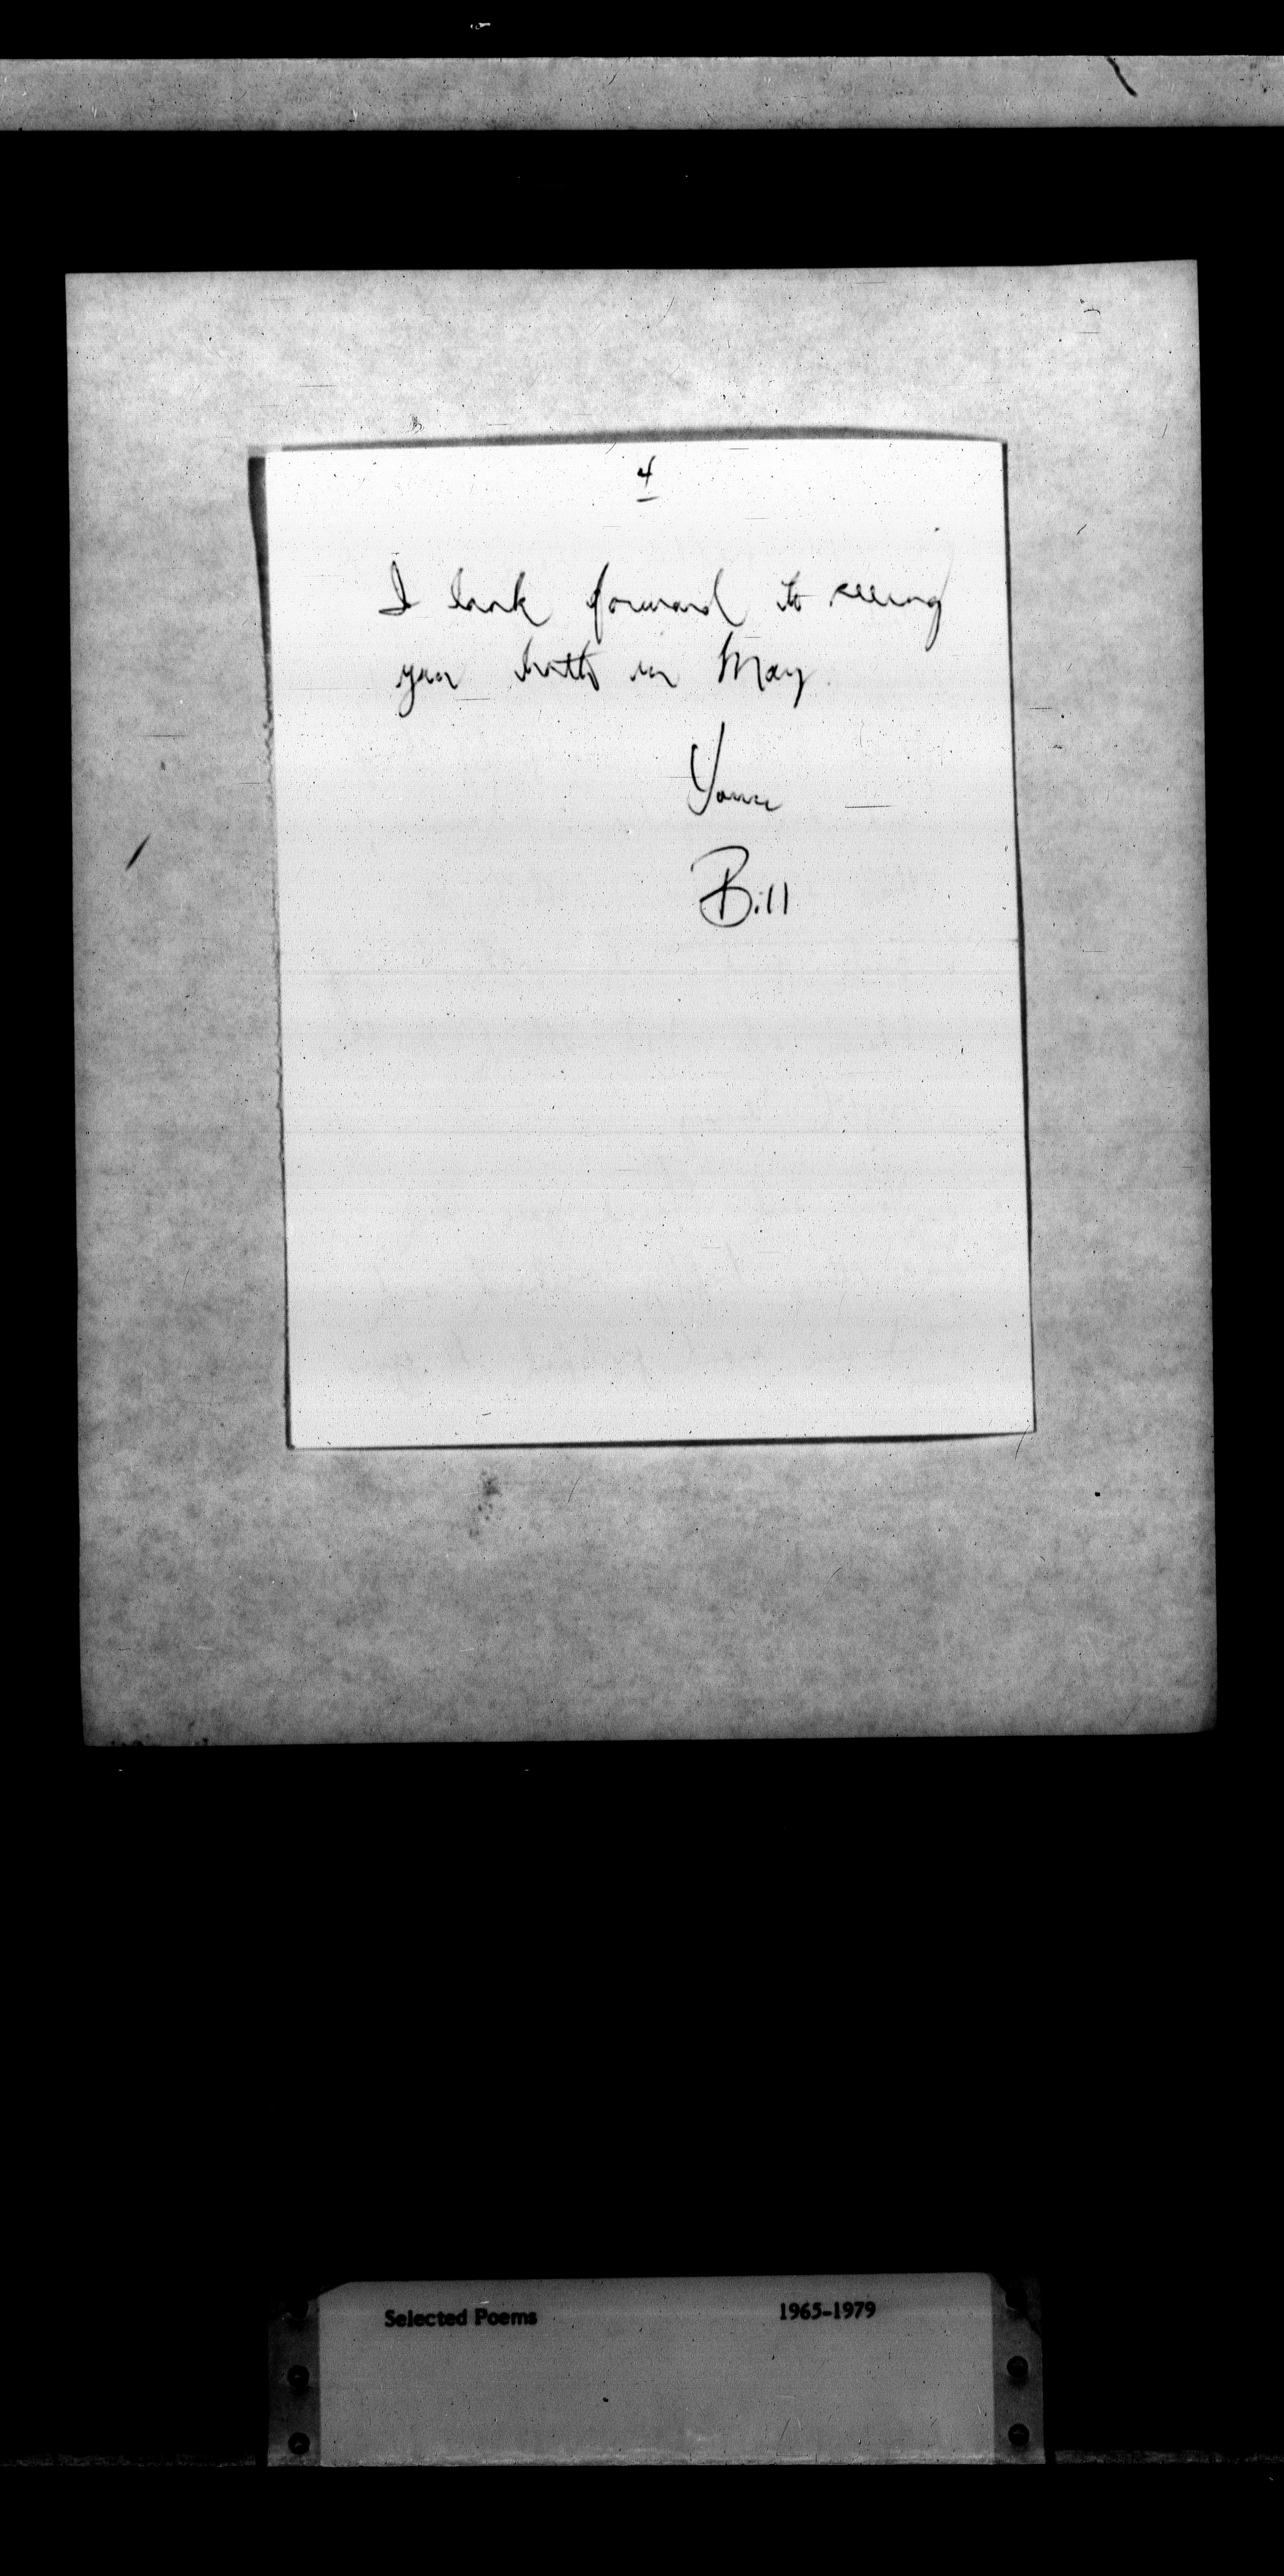 4
I look forward to seeing
you both in May.
Yours
Bill
Selected Poems 1965-1979